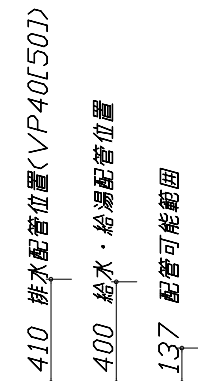 410 排水配管位置(VP40[50])
400 給水・給湯配管位置
137 配管可能範囲